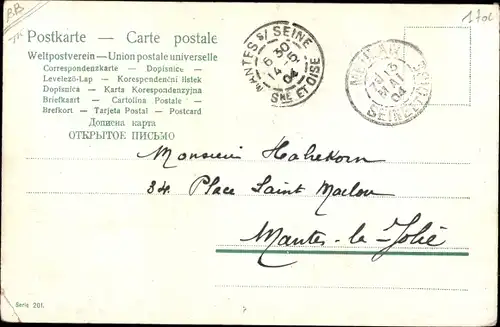 BB
Postkarte — Carte postale
Weltpostverein — Union postale universelle
Correspondenzkarte — Dopisnice —
Levelező-Lap — Korespondenční lístek
Dopisnica — Karta Korespondenzyjna
Briefkaart — Cartolina Postale —
Brefkort — Tarjeta Postal — Postcard
Дописна карта
ОТКРЫТОЕ ПИСЬМО
MANTES S/ SEINE
6 30
14 5
04
SNE ET OISE
SEINE
04
Monsieur Hahekorn
34 Place Saint Maclou
Mantes-la-Jolie
Serie 201.